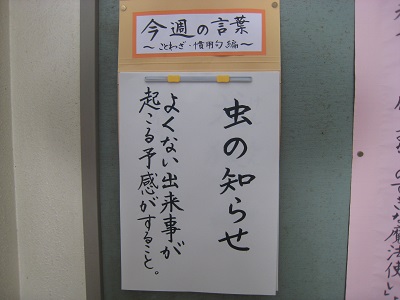 今週の言葉
～ことわざ・慣用句編～
虫の知らせ
よくない出来事が
起こる予感がすること。